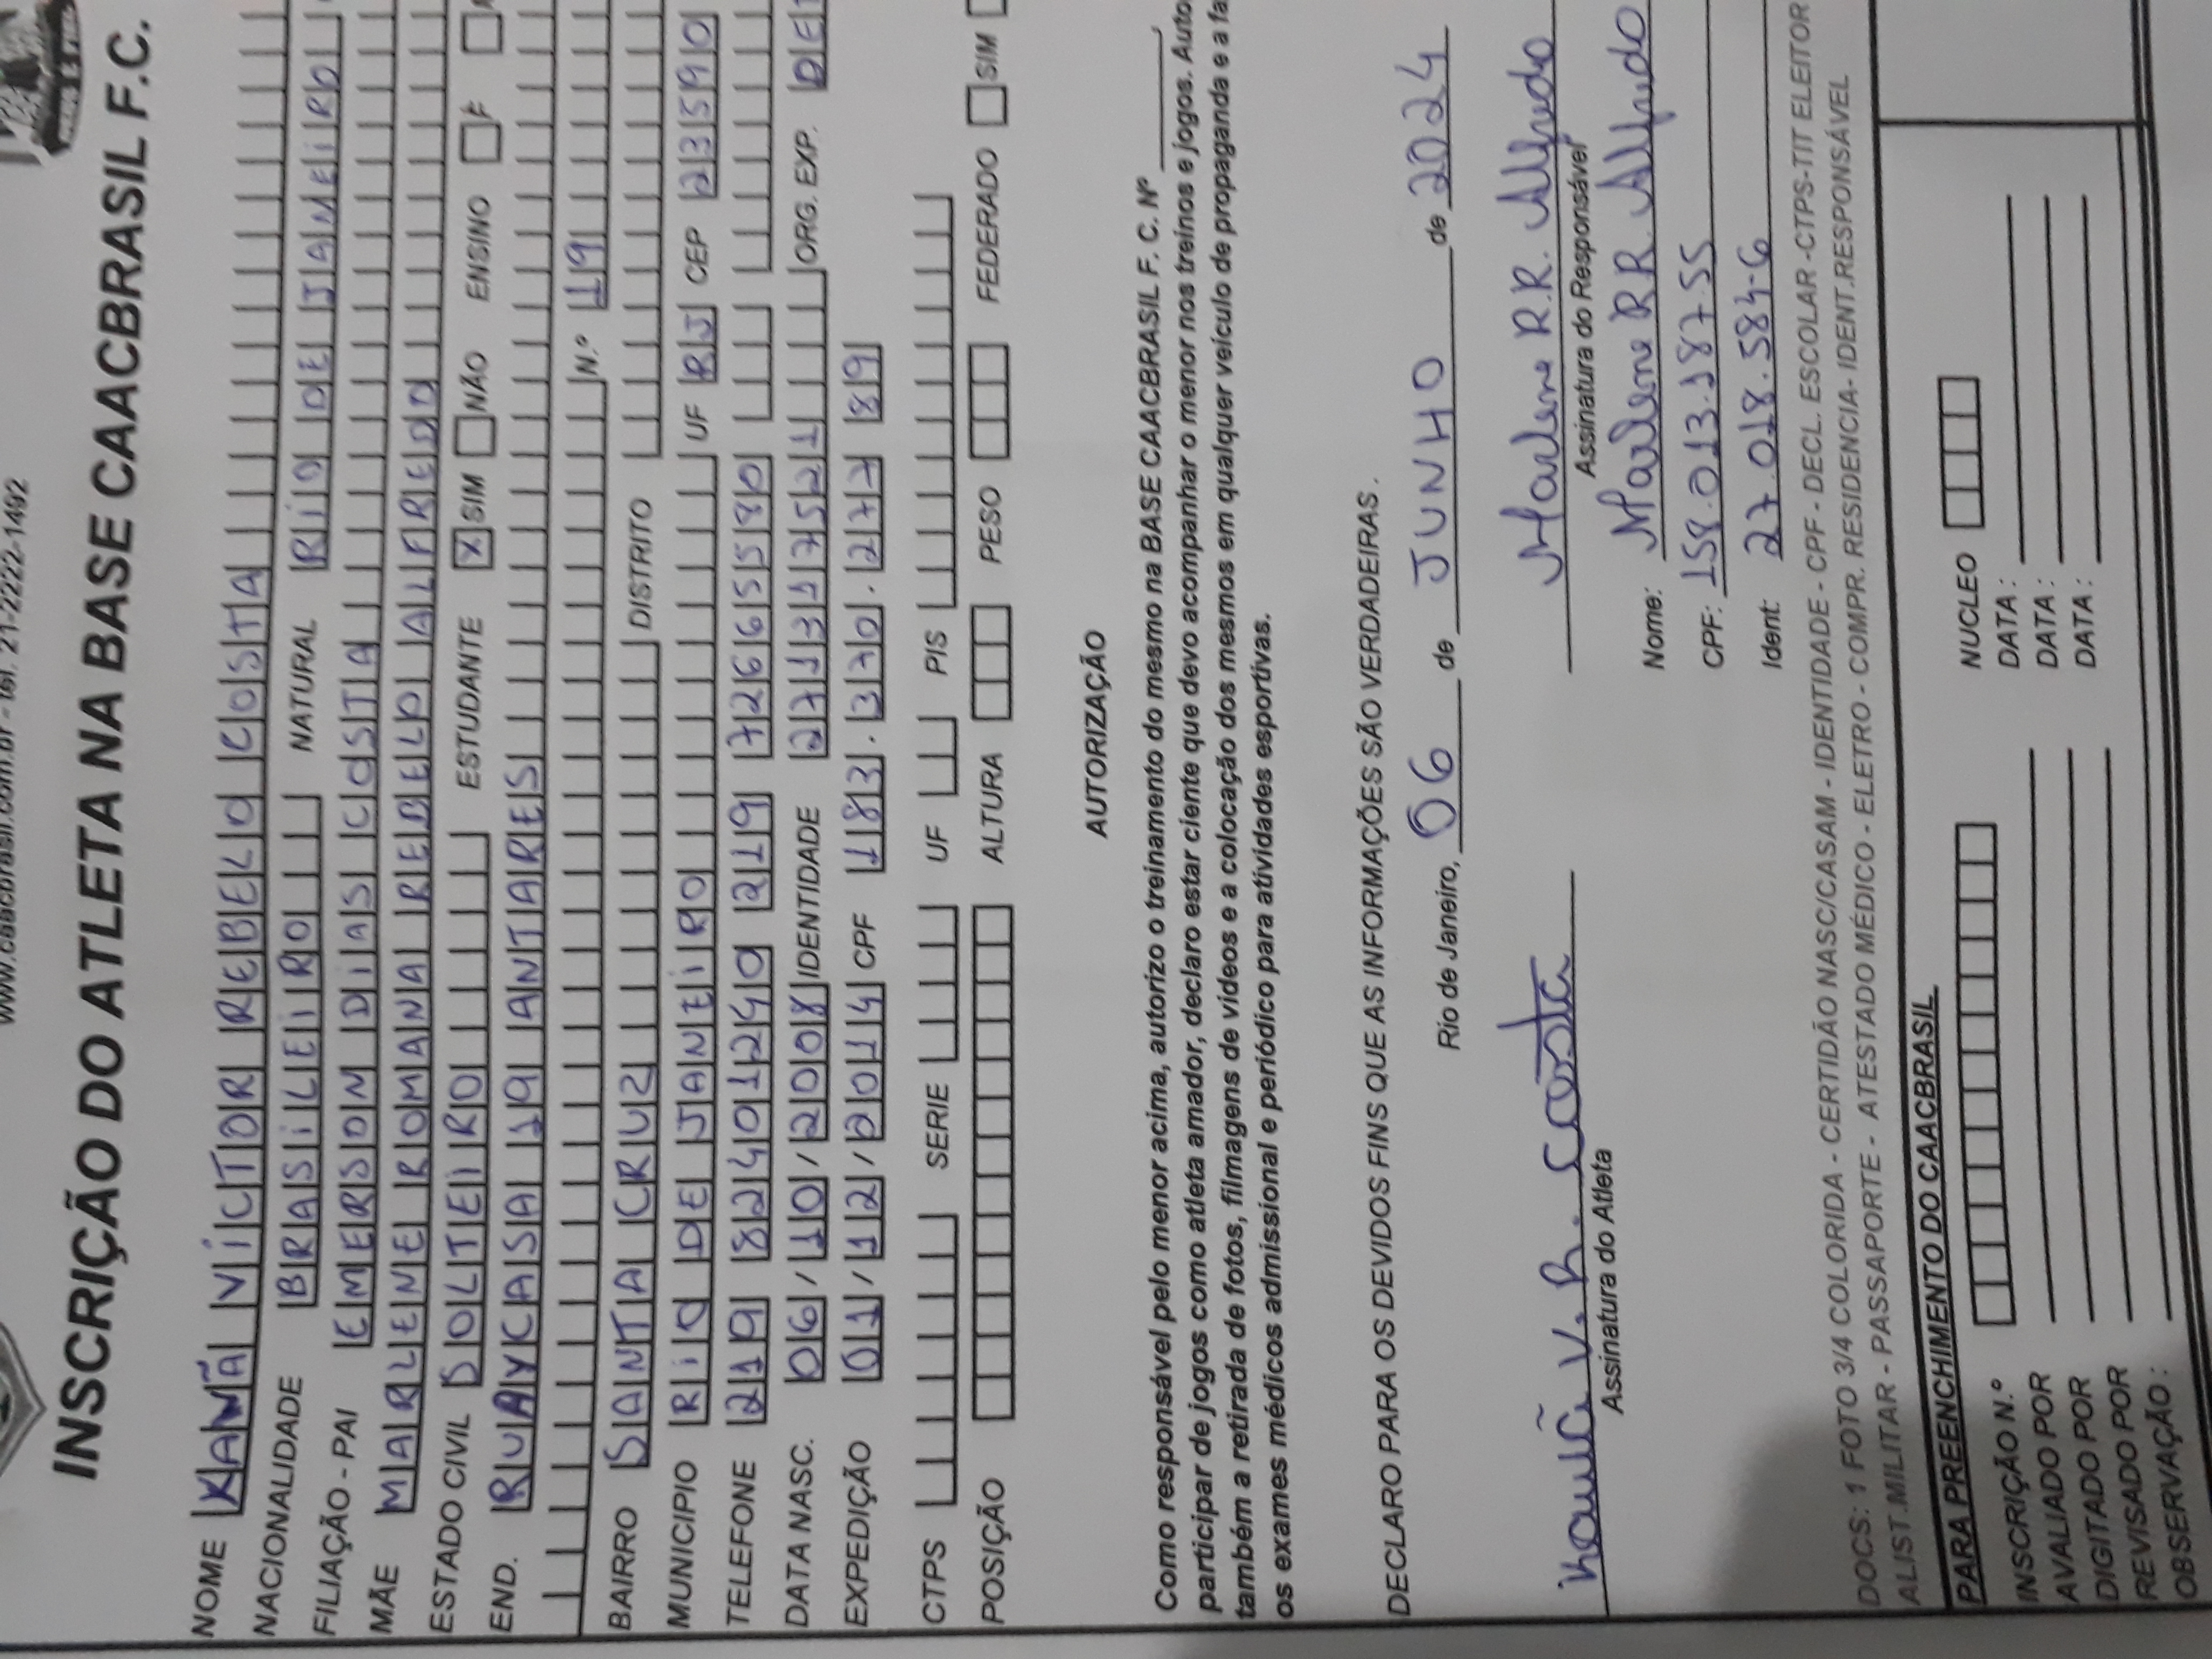 www.caacbrasil.com.br - tel. 21-2222-1492
INSCRIÇÃO DO ATLETA NA BASE CAACBRASIL F.C.
NOME KAWÃ VICTOR REBELO COSTA
NACIONALIDADE BRASILEIRO NATURAL RIO DE JANEIRO
FILIAÇÃO - PAI EMERSON DIAS COSTA
MÃE MARLENE ROMANA REBELO ALFREDO
ESTADO CIVIL SOLTEIRO ESTUDANTE X SIM NÃO ENSINO F
END. RUA Y CASA 19 ANTARES
N.º 19
BAIRRO SANTA CRUZ DISTRITO
MUNICIPIO RIO DE JANEIRO UF RJ CEP 23590
TELEFONE 219 82401240 219 72665580
DATA NASC. 06/10/2008 IDENTIDADE 271317521 ORG. EXP. DE
EXPEDIÇÃO 01/12/2014 CPF 183.370.277 89
CTPS SERIE UF PIS
POSIÇÃO ALTURA PESO FEDERADO SIM
AUTORIZAÇÃO
Como responsável pelo menor acima, autorizo o treinamento do mesmo na BASE CAACBRASIL F. C. Nº
participar de jogos como atleta amador, declaro estar ciente que devo acompanhar o menor nos treinos e jogos. Auto
também a retirada de fotos, filmagens de videos e a colocação dos mesmos em qualquer veículo de propaganda e a fa
os exames médicos admissional e periódico para atividades esportivas.
DECLARO PARA OS DEVIDOS FINS QUE AS INFORMAÇÕES SÃO VERDADEIRAS.
Rio de Janeiro, 06 de JUNHO de 2024
Kauã V. R. Costa Marlene R.R. Alfredo
Assinatura do Atleta Assinatura do Responsável
Nome: Marlene R.R. Alfredo
CPF: 158.013.187-55
Ident: 27.018.584-6
DOCS: 1 FOTO 3/4 COLORIDA - CERTIDÃO NASC/CASAM - IDENTIDADE - CPF - DECL. ESCOLAR -CTPS-TIT ELEITOR
ALIST.MILITAR - PASSAPORTE - ATESTADO MÉDICO - ELETRO - COMPR. RESIDENCIA- IDENT.RESPONSÁVEL
PARA PREENCHIMENTO DO CAACBRASIL
INSCRIÇÃO N.º NUCLEO
AVALIADO POR DATA :
DIGITADO POR DATA :
REVISADO POR DATA :
OBSERVAÇÃO :